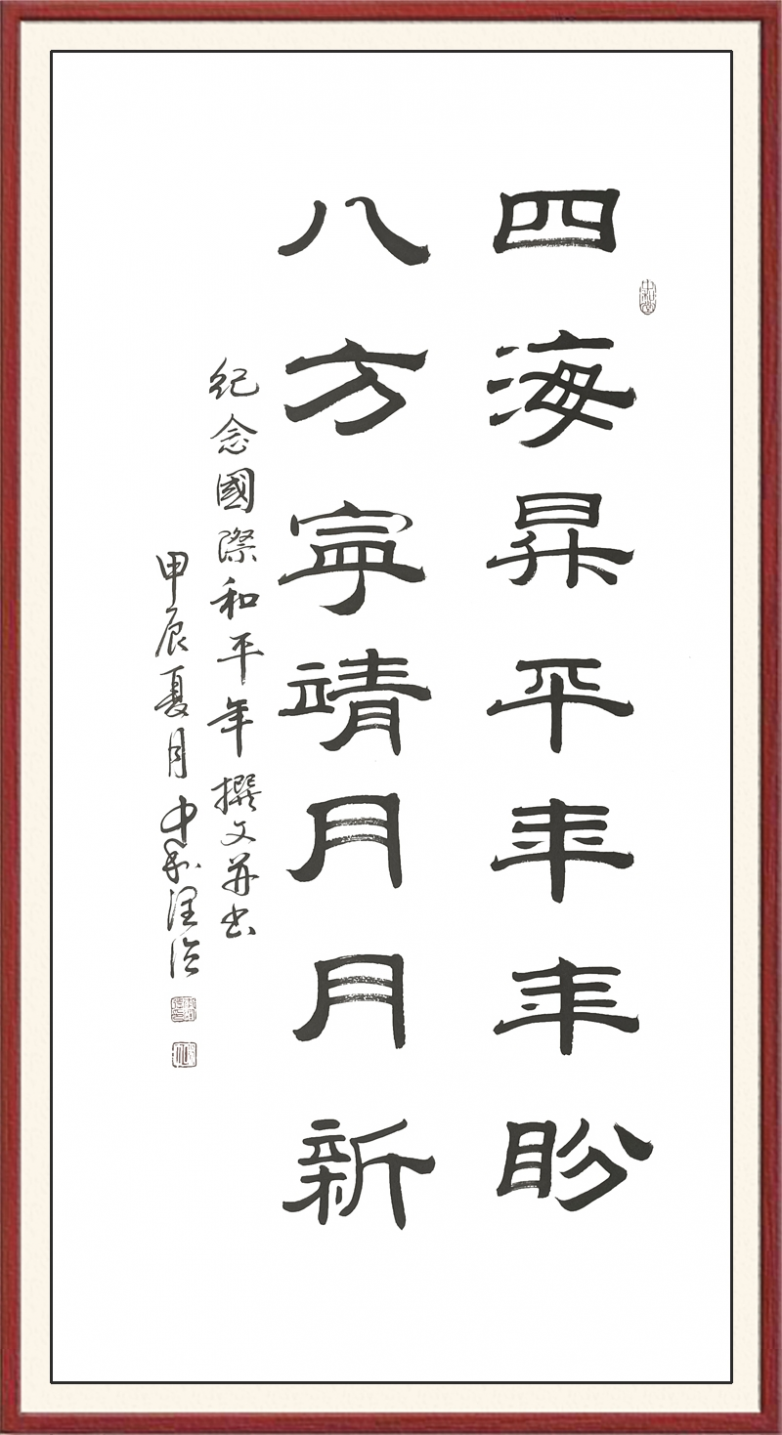 四海昇平年年盼
八方寧靖月月新
紀念國際和平年撰文并書
甲辰夏月中和